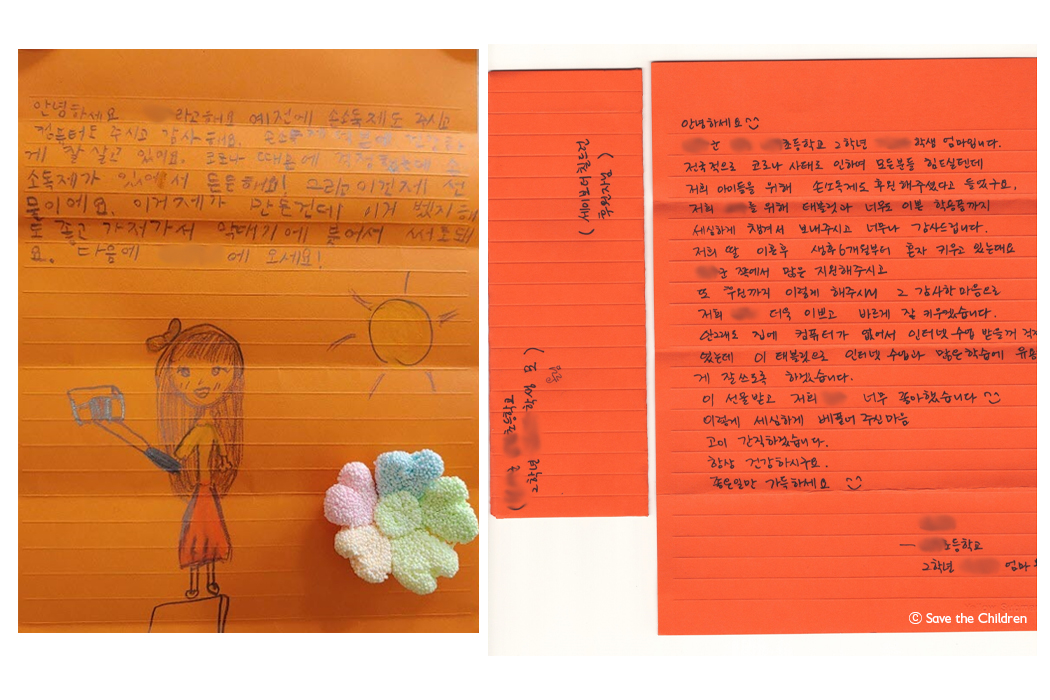 안녕하세요 라고해요 예전에 손소독제도 주시고
컴퓨터도 주시고 감사해요.
게 잘 살고 있어요. 코로나 때문에 손
소독제가 있어서 든든해요! 그리고 이건 제 선
물이에요. 이거 제가 만든건데 이거
도 좋고 가져가서 막대기에 붙어서 써도돼
요. 다음에 에 오세요!
(세이브더칠드런
후원자님)
( 초등학교
2학년 학생 모)
안녕하세요
군 초등학교 2학년 학생 엄마입니다.
전국적으로 코로나 사태로 인하여 모든분들 힘드실텐데
저희 아이들을 위해 손소독제도 후원해주셨다고 들었구요.
저희 를 위해 태블릿과 너무도 이쁜 학용품까지
세심하게 챙겨서 보내주시고 너무나 감사드립니다.
저희 딸 이혼후 생후 6개월부터 혼자 키우고 있는데요
군 쪽에서 많은 지원해주시고
또 후원까지 이렇게 해주시니 그 감사한 마음으로
저희 더욱 이쁘고 바르게 잘 키우겠습니다.
안그래도 집에 컴퓨터가 없어서 인터넷 수업 받을꺼
있는데 이 태블릿으로 인터넷 수업과 많은학습에
게 잘쓰도록 하겠습니다.
이 선물받고 저희 너무 좋아했습니다
이렇게 세심하게 베풀어 주신마음
고이 간직하겠습니다.
항상 건강하시구요.
좋은일만 가득하세요
— 초등학교
2학년 엄마
© Save the Children